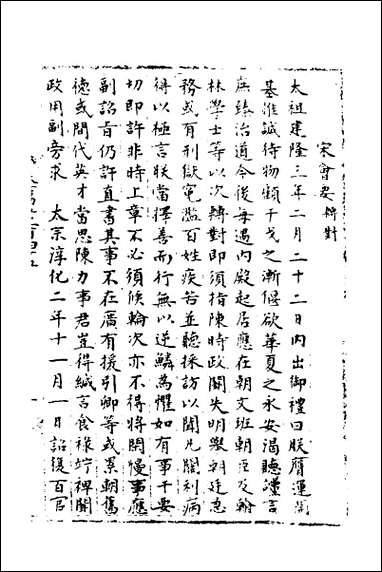 宋會要 轉對
太祖建隆三年二月二十二日內出御札曰朕膺運開
基推誠待物顧干戈之漸偃欲華夏之永安渴聽讜言
庶臻治道今後每遇內殿起居應在朝文班朝臣及翰
林學士等以次轉對即須指陳時政闕失明舉朝廷急
務或有刑獄冤濫百姓疾苦並聽採訪以聞凡關利病
得以極言朕當擇善而行無以逆鱗為懼如有事干要
切即許非時上章不必須候輪次亦不得將閑慢事應
副詔旨仍許直書其事不在廣有援引卿等或累朝舊
德或間代英才當思陳力事君豈得緘言食祿竚裨闕
政用副旁求 太宗淳化二年十一月一日詔復百官